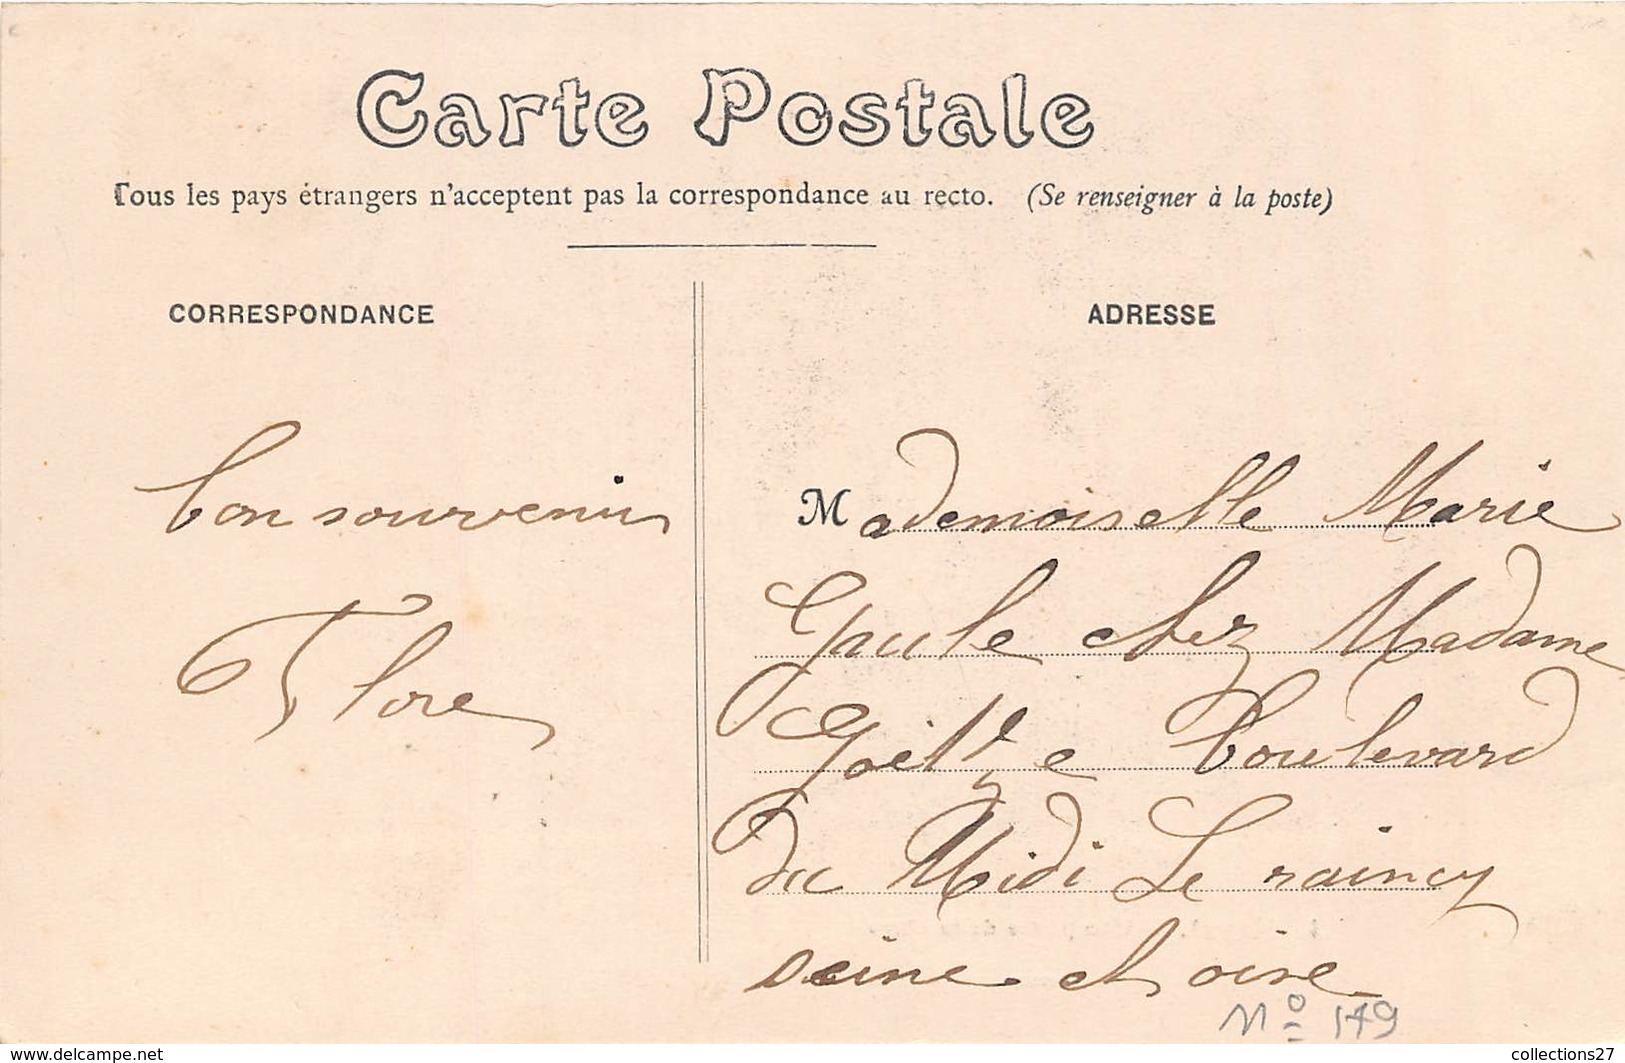 Carte Postale
Tous les pays étrangers n'acceptent pas la correspondance au recto. (Se renseigner à la poste)
CORRESPONDANCE
bon souvenir
Flore
ADRESSE
Mademoiselle Marie
Gaule chez Madame
Goëtze boulevard
du Midi Le raincy
seine et oise
No 149
delcampe.net
collections27